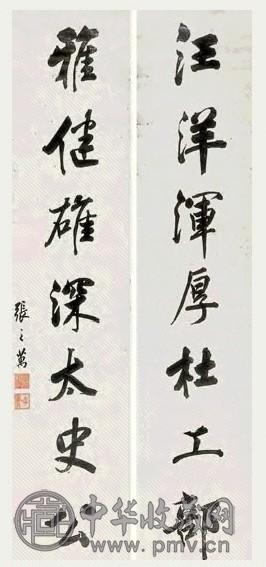 汪洋渾厚杜工部
雅健雄深太史公
張之萬
中华收藏网
www.pmv.cn